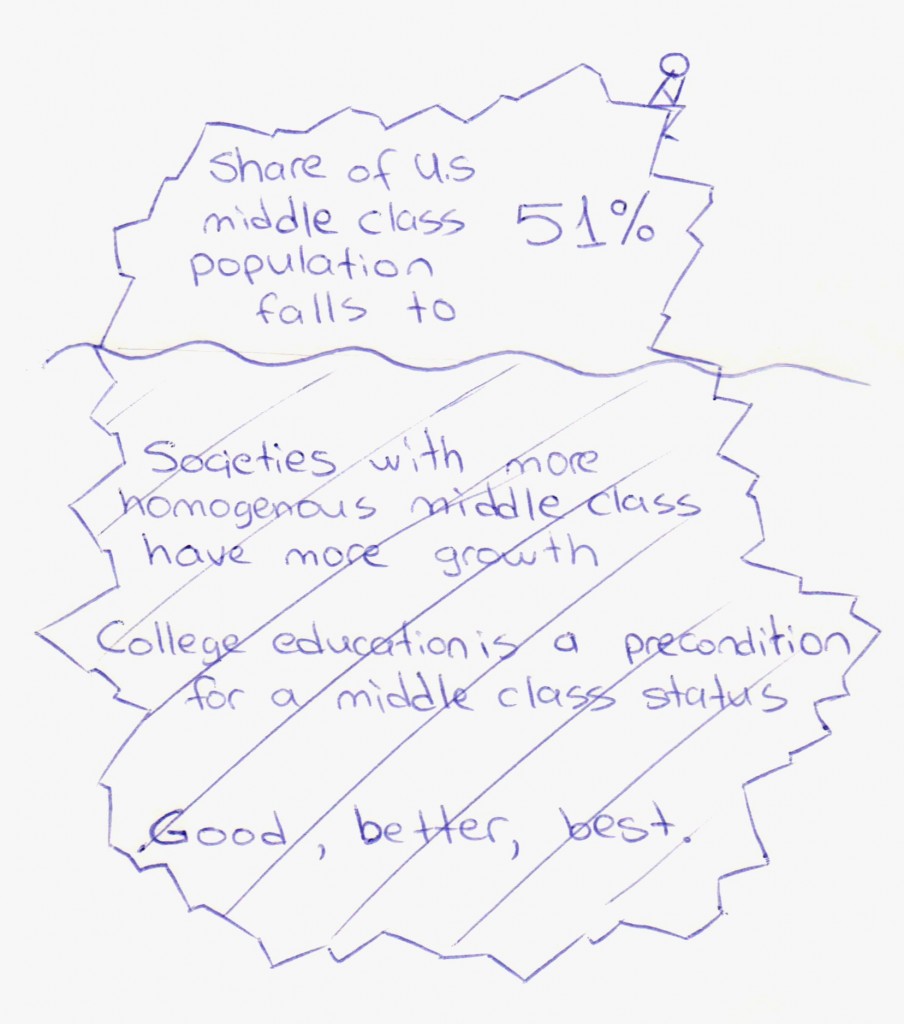 Share of U.S
middle class 51%
population
falls to
Societies with more
homogenous middle class
have more growth
College education is a precondition
for a middle class status
Good, better, best.